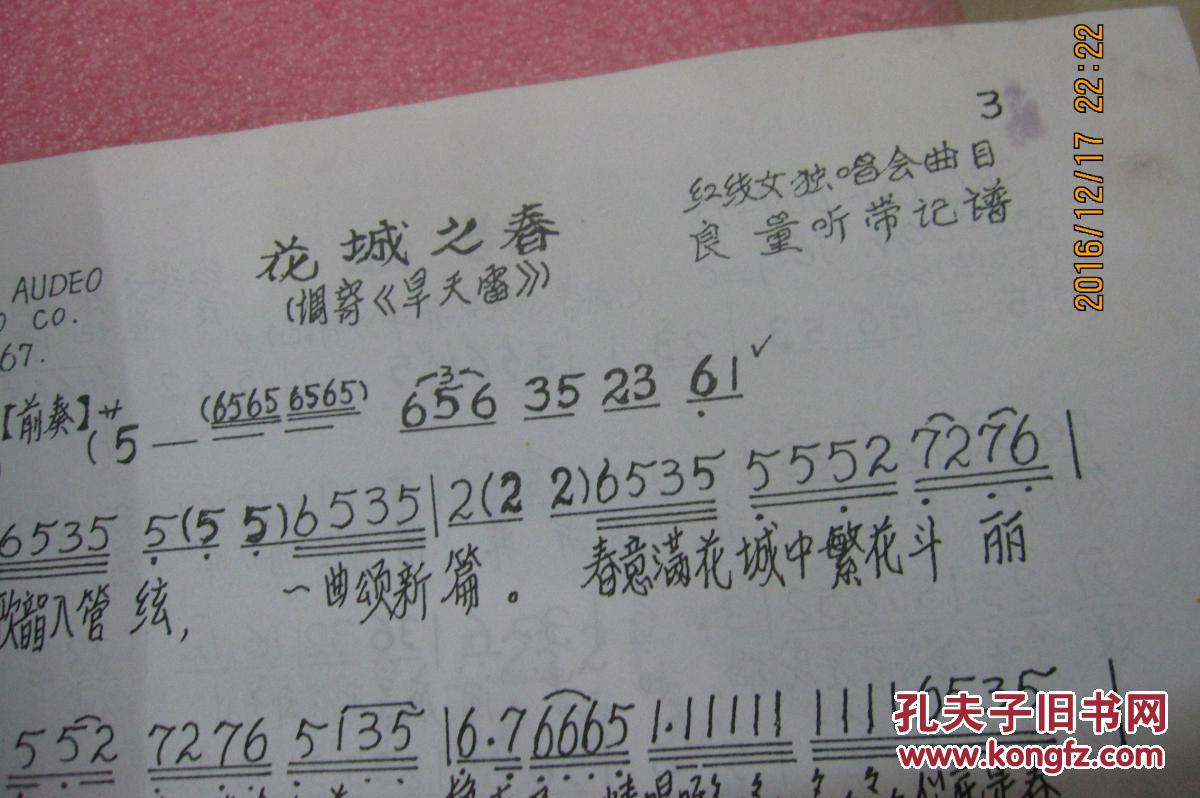 3
红线女独唱会曲目
良量听带记谱
花城之春
(调寄《旱天雷》)
AUDEO
CO.
67.
【前奏】サ(5 — (6565 6565) 656 35 23 61 ✓
3
6535 5(5 5)6535|2(2 2)6535 5552 7276|
歌韵入管弦, 一曲颂新篇。 春意满花城中繁花斗丽
552 7276 5135|6.76665 1.11111 11116535|
2016/12/17 22:22
孔夫子旧书网
www.kongfz.com